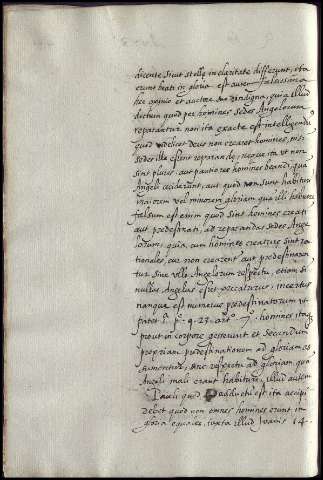 dicente sicut stellę in claritate differunt, ita
erunt beati in gloria est autem falsissima
hec opinio et auctore suo digna, quia illud
dictum quod per homines sedes Angelorum
reparantur non ita exacte est intelligendū
quod videlicet deus non crearet homines, nisi
sedes ille essent reparandę: neque ita ut non
sint plures aut pautiores homines beandi, qua
Angeli ceciderunt, aut quod non sunt habituri
maiorem vel minorem gloriam qua illi habituri
falsum est enim quod sint homines creati
aut predestinati, ad reparandas sedes Ange
lorum, quia cum homines creature sint ra
tionales, cur non crearent aut predestinaren
tur sine ullo Angelorum respectu, etiam si
nullus Angelus esset peccaturus, incertus
namque est numerus predestinatorum ut
patet 1. p. q. 23. artº. 7. homines ita
prout in corpore gesserunt et secundum
propriam predestinationem ad gloriam as
sumentur, sine respectu ad gloriam qua
Angeli mali erant habituri, illud autem
Pauli quod adductū est ita accipi
debet quod non omnes homines erunt in
gloria equales, iuxta illud Joanis 14.